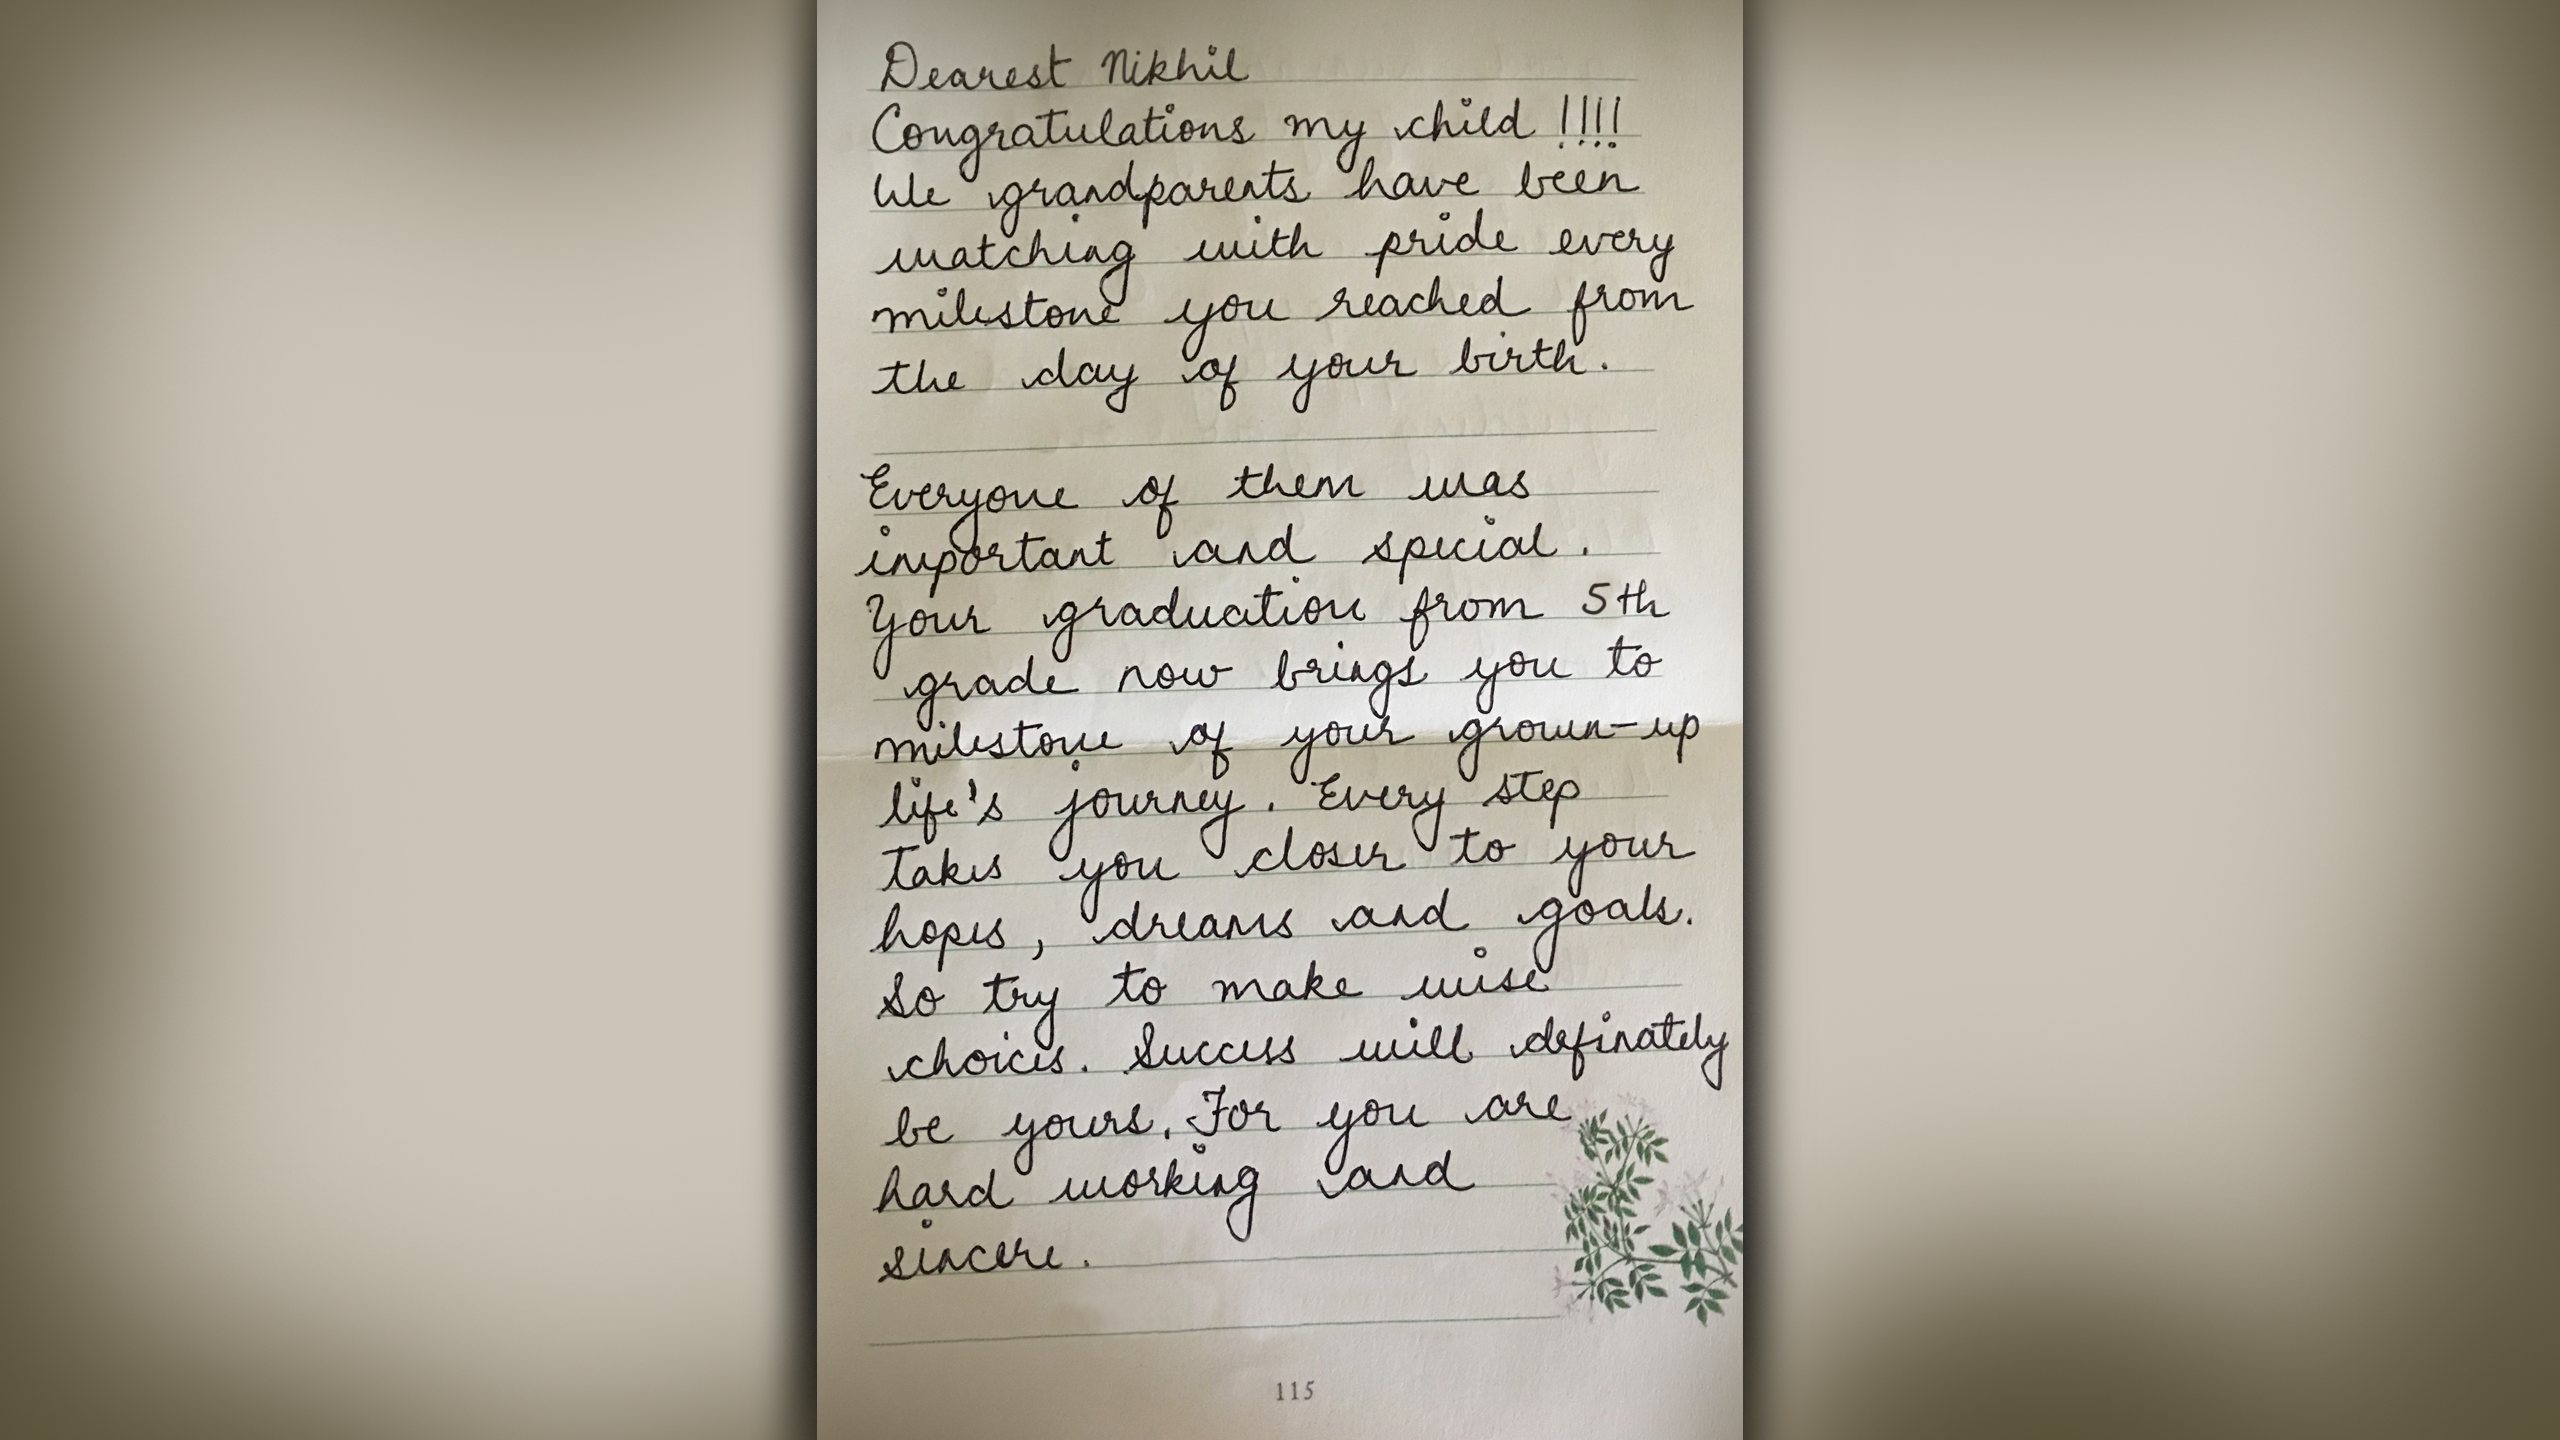 Dearest Nikhil
Congratulations my child !!!!
We grandparents have been
watching with pride every
milestone you reached from
the day of your birth.
Everyone of them was
important and special.
Your graduation from 5th
grade now brings you to
milestone of your grown-up
life's journey. Every step
takes you closer to your
hopes, dreams and goals.
So try to make wise
choices. Success will definately
be yours. For you are
hard working and
sincere.
115